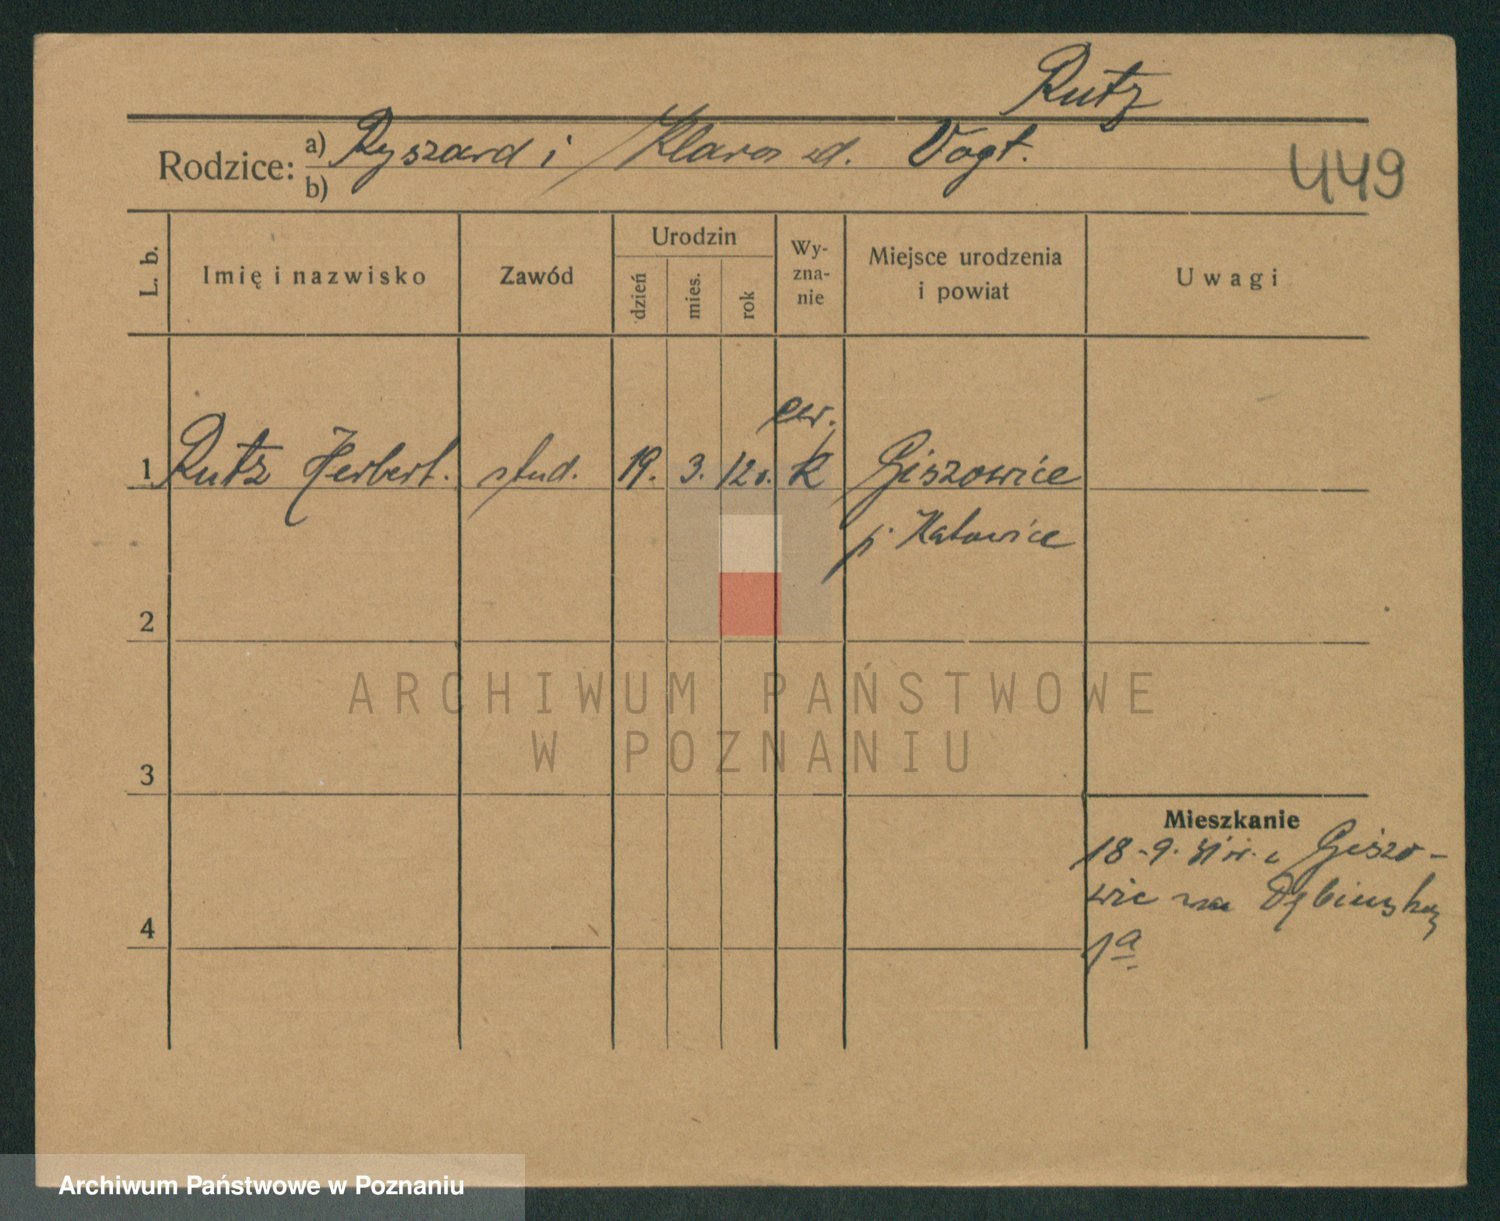 Rutz
Rodzice: a) Ryszard i Klara zd. Vogt.
b)
449
L. b.
Imię i nazwisko
Zawód
Urodzin
dzień
mies.
rok
Wy-
zna-
nie
Miejsce urodzenia
i powiat
Uwagi
ew.
1 Rutz Herbert. stud. 19. 3. 12 r. k Giszowice
p. Katowice
2
3
4
Mieszkanie
18.-9. 31 r. z Giszo-
wic na Dębińską
1a
ARCHIWUM PAŃSTWOWE
W POZNANIU
Archiwum Państwowe w Poznaniu